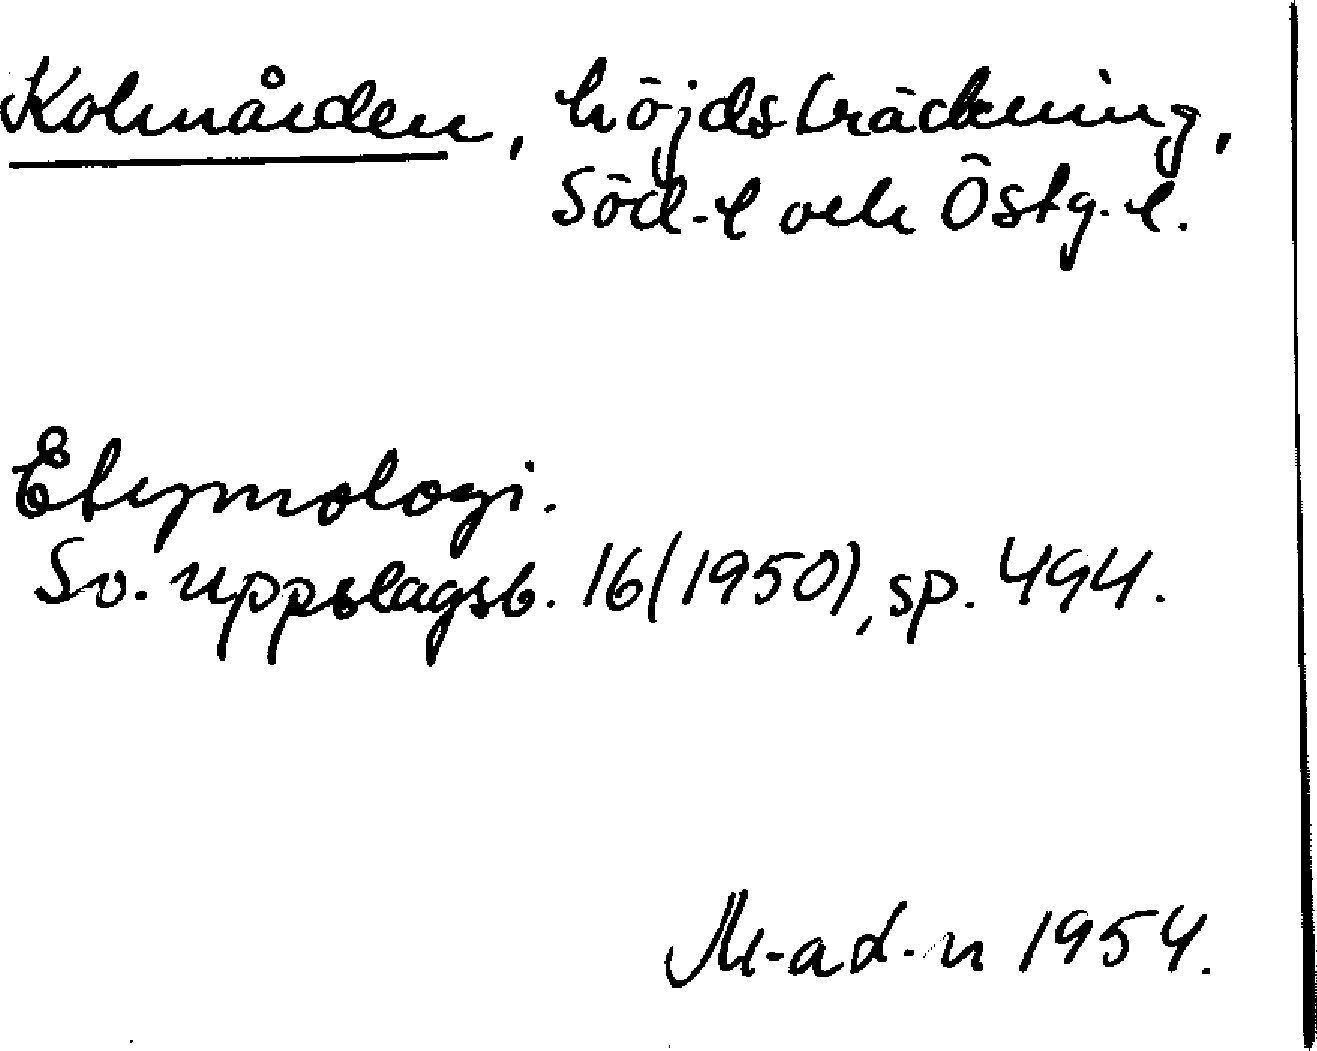 Kolmården, höjdsträckning,
Söd-l och Östg.-l.
Etymologi.
Sv. uppslagsb. 16(1950), sp. 494.
1954.